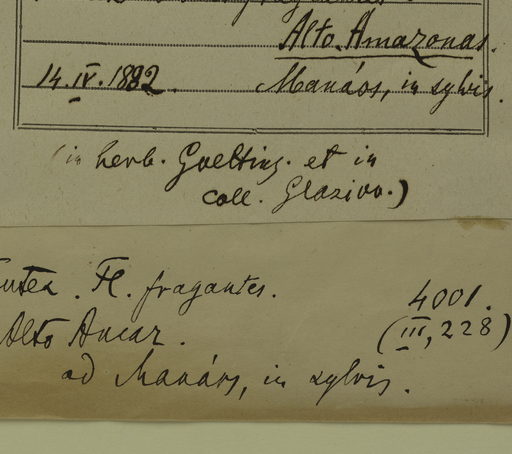 Alto Amazonas.
14.IV.1882. Manáos, in sylvis.
(in herb. Goetting. et in
coll. Glaziou.)
lutea. Fl. fragantes. 4001.
Alto Amaz. (III, 228)
ad Manáos, in sylvis.